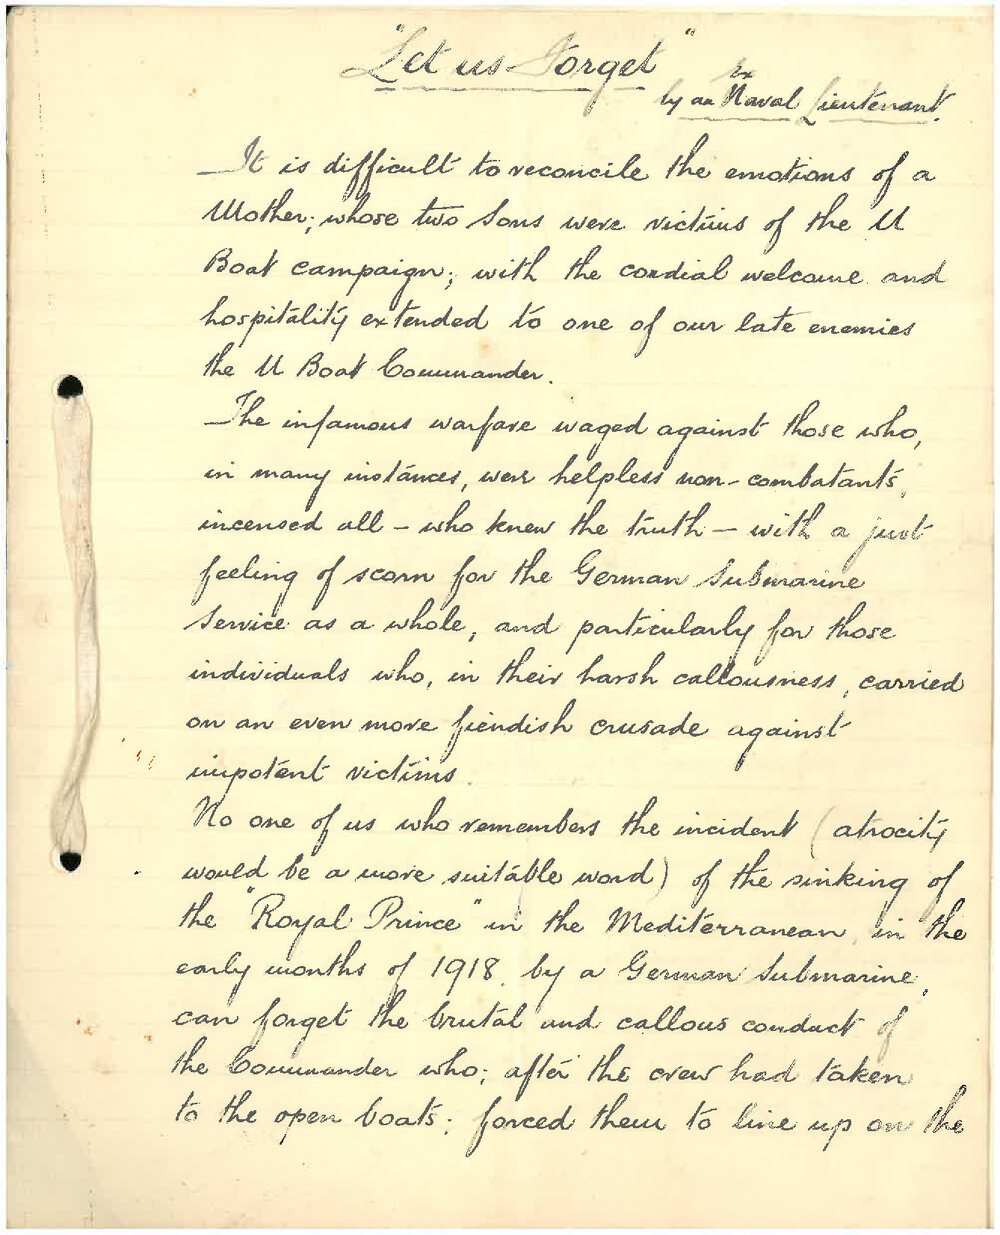 "Let us Forget"
by an Ex Naval Lieutenant.
It is difficult to reconcile the emotions of a
Mother; whose two Sons were victims of the U
Boat campaign; with the cordial welcome and
hospitality extended to one of our late enemies
the U Boat Commander.
The infamous warfare waged against those who,
in many instances, were helpless non-combatants,
incensed all - who knew the truth - with a just
feeling of scorn for the German Submarine
Service as a whole, and particularly for those
individuals who, in their harsh callousness, carried
on an even more fiendish crusade against
impotent victims.
No one of us who remembers the incident (atrocity
would be a more suitable word) of the sinking of
the "Royal Prince" in the Mediterranean in the
early months of 1918. by a German Submarine,
can forget the brutal and callous conduct of
the Commander who; after the crew had taken
to the open boats; forced them to line up on the